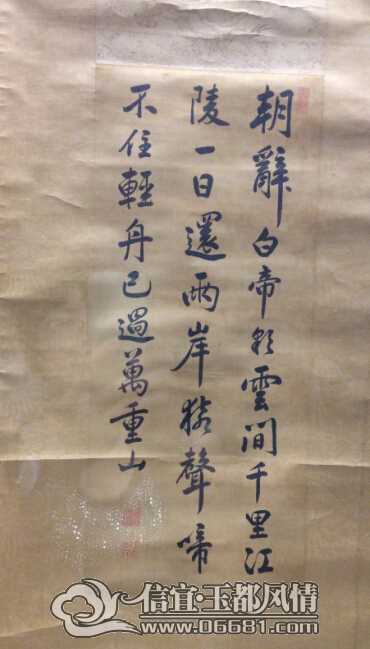 朝辭白帝彩雲間千里江
陵一日還兩岸猿聲啼
不住輕舟已過萬重山
信宜·玉都风情
www.06681.com